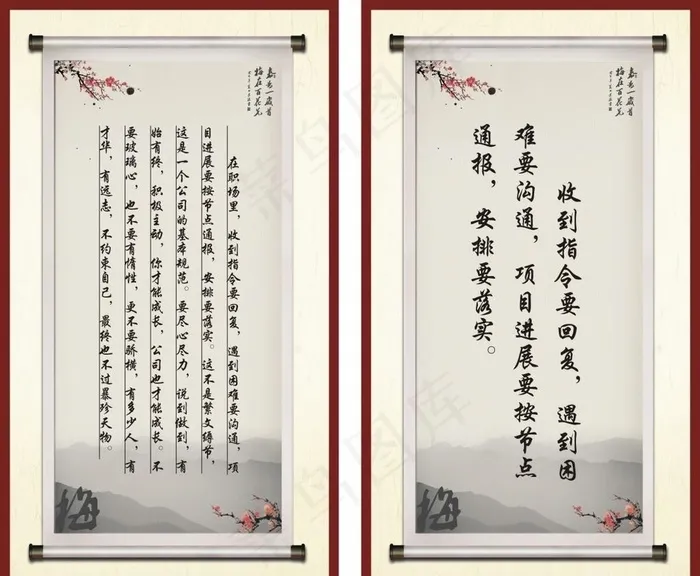 在职场里，收到指令要回复，遇到困难要沟通，项
目进展要按节点通报，安排要落实。这不是繁文缛节，
这是一个公司的基本规范。要尽心尽力，说到做到，有
始有终，积极主动，你才能成长，公司也才能成长。不
要玻璃心，也不要有惰性，更不要骄横，有多少人，有
才华，有远志，不约束自己，最终也不过暴殄天物。
梅
收到指令要回复，遇到困
难要沟通，项目进展要按节点
通报，安排要落实。
梅
菜鸟图库